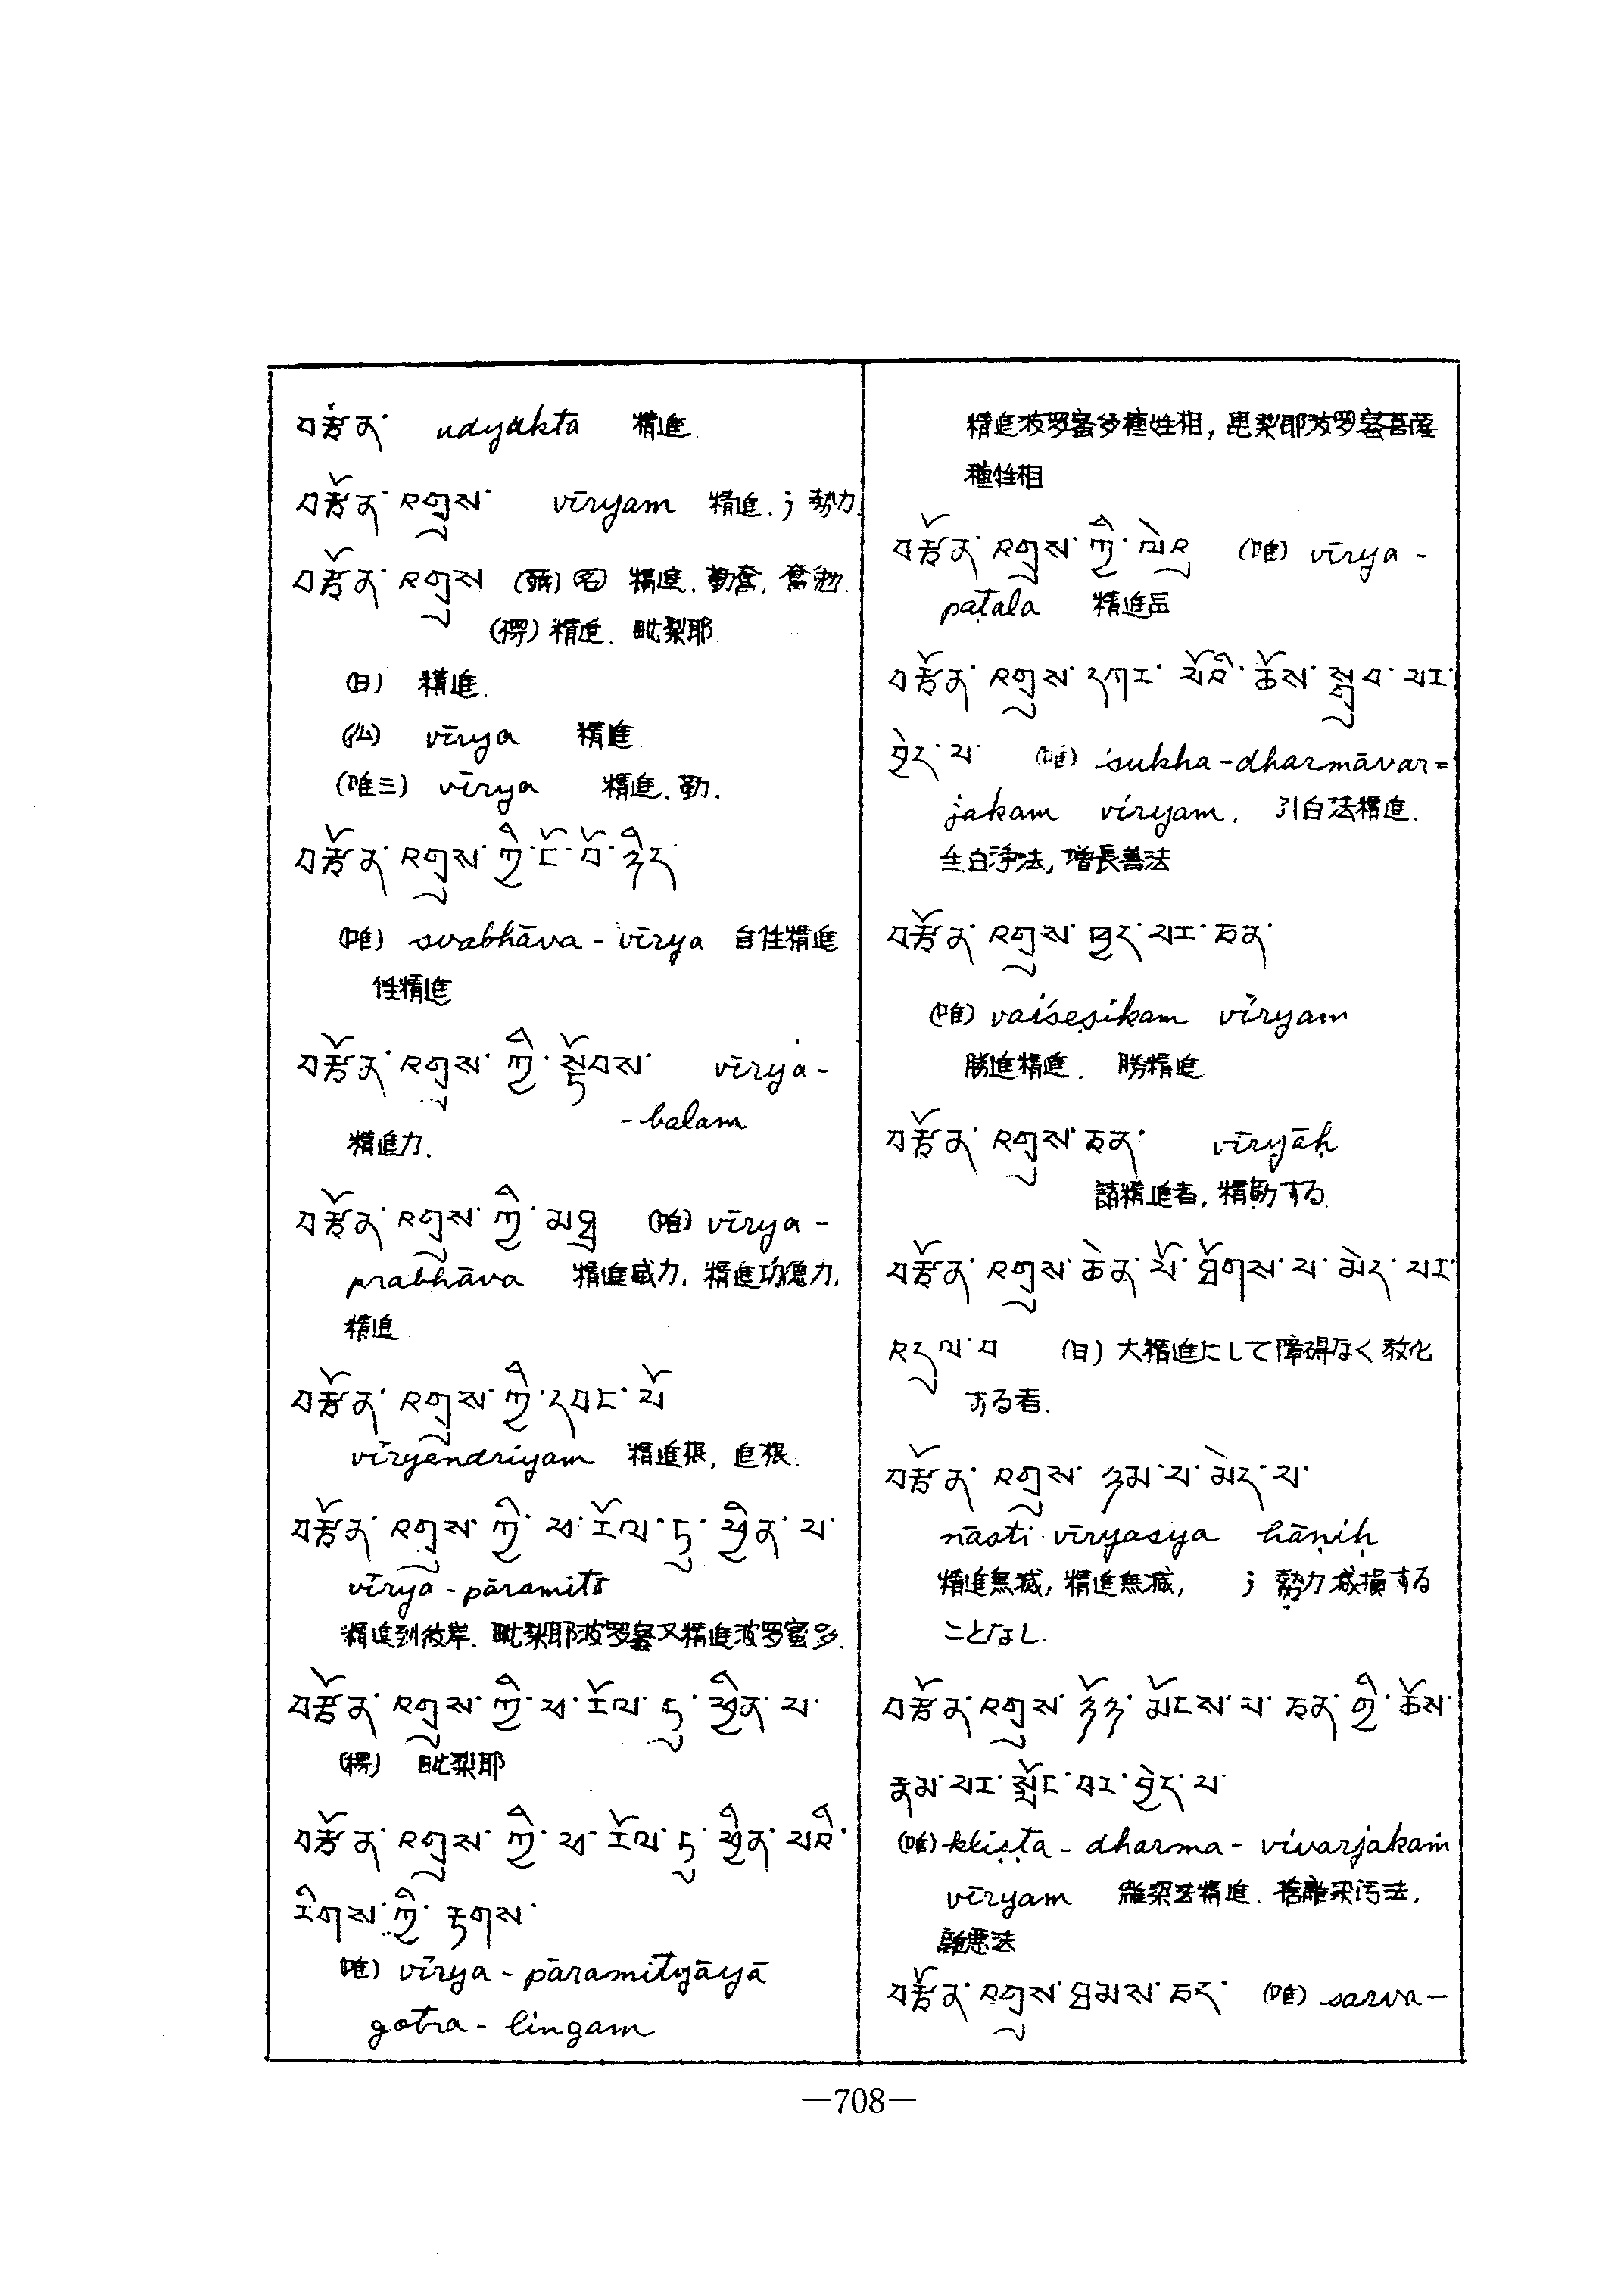 བརྩོན་ udyuktā 精進
བརྩོན་འགྲུས་ vīryam 精進.；勢力.
བརྩོན་འགྲུས 精進. 勤奮, 奮勉.
(楞) 精進. 毗梨耶
(日) 精進.
(仏) vīrya 精進
(唯三) vīrya 精進, 勤.
བརྩོན་འགྲུས་ཀྱི་ངོ་བོ་ཉིད་
(唯) svabhāva - vīrya 自性精進
性精進
བརྩོན་འགྲུས་ཀྱི་སྟོབས་ vīrya-
-balam
精進力.
བརྩོན་འགྲུས་ཀྱི་མཐུ (唯) vīrya -
prabhāva 精進威力, 精進功德力,
精進
བརྩོན་འགྲུས་ཀྱི་དབང་པོ
vīryendriyam 精進根, 進根.
བརྩོན་འགྲུས་ཀྱི་ཕ་རོལ་ཏུ་ཕྱིན་པ་
vīrya - pāramitā
精進到彼岸. 毗梨耶波罗蜜又精進波罗蜜多.
བརྩོན་འགྲུས་ཀྱི་ཕ་རོལ་ཏུ་ཕྱིན་པ་
(楞) 毗梨耶
བརྩོན་འགྲུས་ཀྱི་ཕ་རོལ་ཏུ་ཕྱིན་པའི་
རིགས་ཀྱི་རྟགས་
(唯) vīrya - pāramityāyā
gotra - lingam
精進波罗蜜多種姓相, 毘梨耶波罗蜜菩薩
種性相
བརྩོན་འགྲུས་ཀྱི་ལེའུ (唯) vīrya -
paṭala 精進品
བརྩོན་འགྲུས་དཀར་པོའི་ཆོས་སྒྲུབ་པར་
བྱེད་པ་ (唯) śukha-dharmāvar=
jakam víryam, 引白法精進.
生白淨法, 增長善法
བརྩོན་འགྲུས་ཁྱད་པར་ཅན་
(唯) vaiśeṣikam vīryam
勝進精進. 勝精進
བརྩོན་འགྲུས་ཅན་ vīryāḥ
諸精進者, 精勤する.
བརྩོན་འགྲུས་ཆེན་པོ་ཐོགས་པ་མེད་པར་
འདུལ་བ (日) 大精進にして障碍なく教化
する者.
བརྩོན་འགྲུས་ཉམ་པ་མེད་པ་
nāsti vīryasya hāṇiḥ
精進無減, 精進無减, ；勢力减損する
ことなし.
བརྩོན་འགྲུས་ཉོན་མོངས་པ་ཅན་གྱི་ཆོས་
རྣམ་པར་སྤོང་བར་བྱེད་པ་
(唯) kliṣṭa - dharma - vivarjakaṁ
vīryam 離染法精進. 捨離染污法,
離悪法
བརྩོན་འགྲུས་ཐམས་ཅད་ (唯) sarva-
—708—